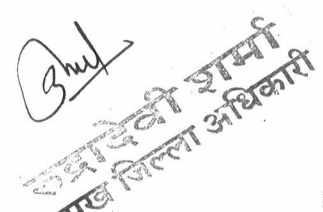 रुद्रादेवी शर्मा
मुख जिल्ला अधिकारी